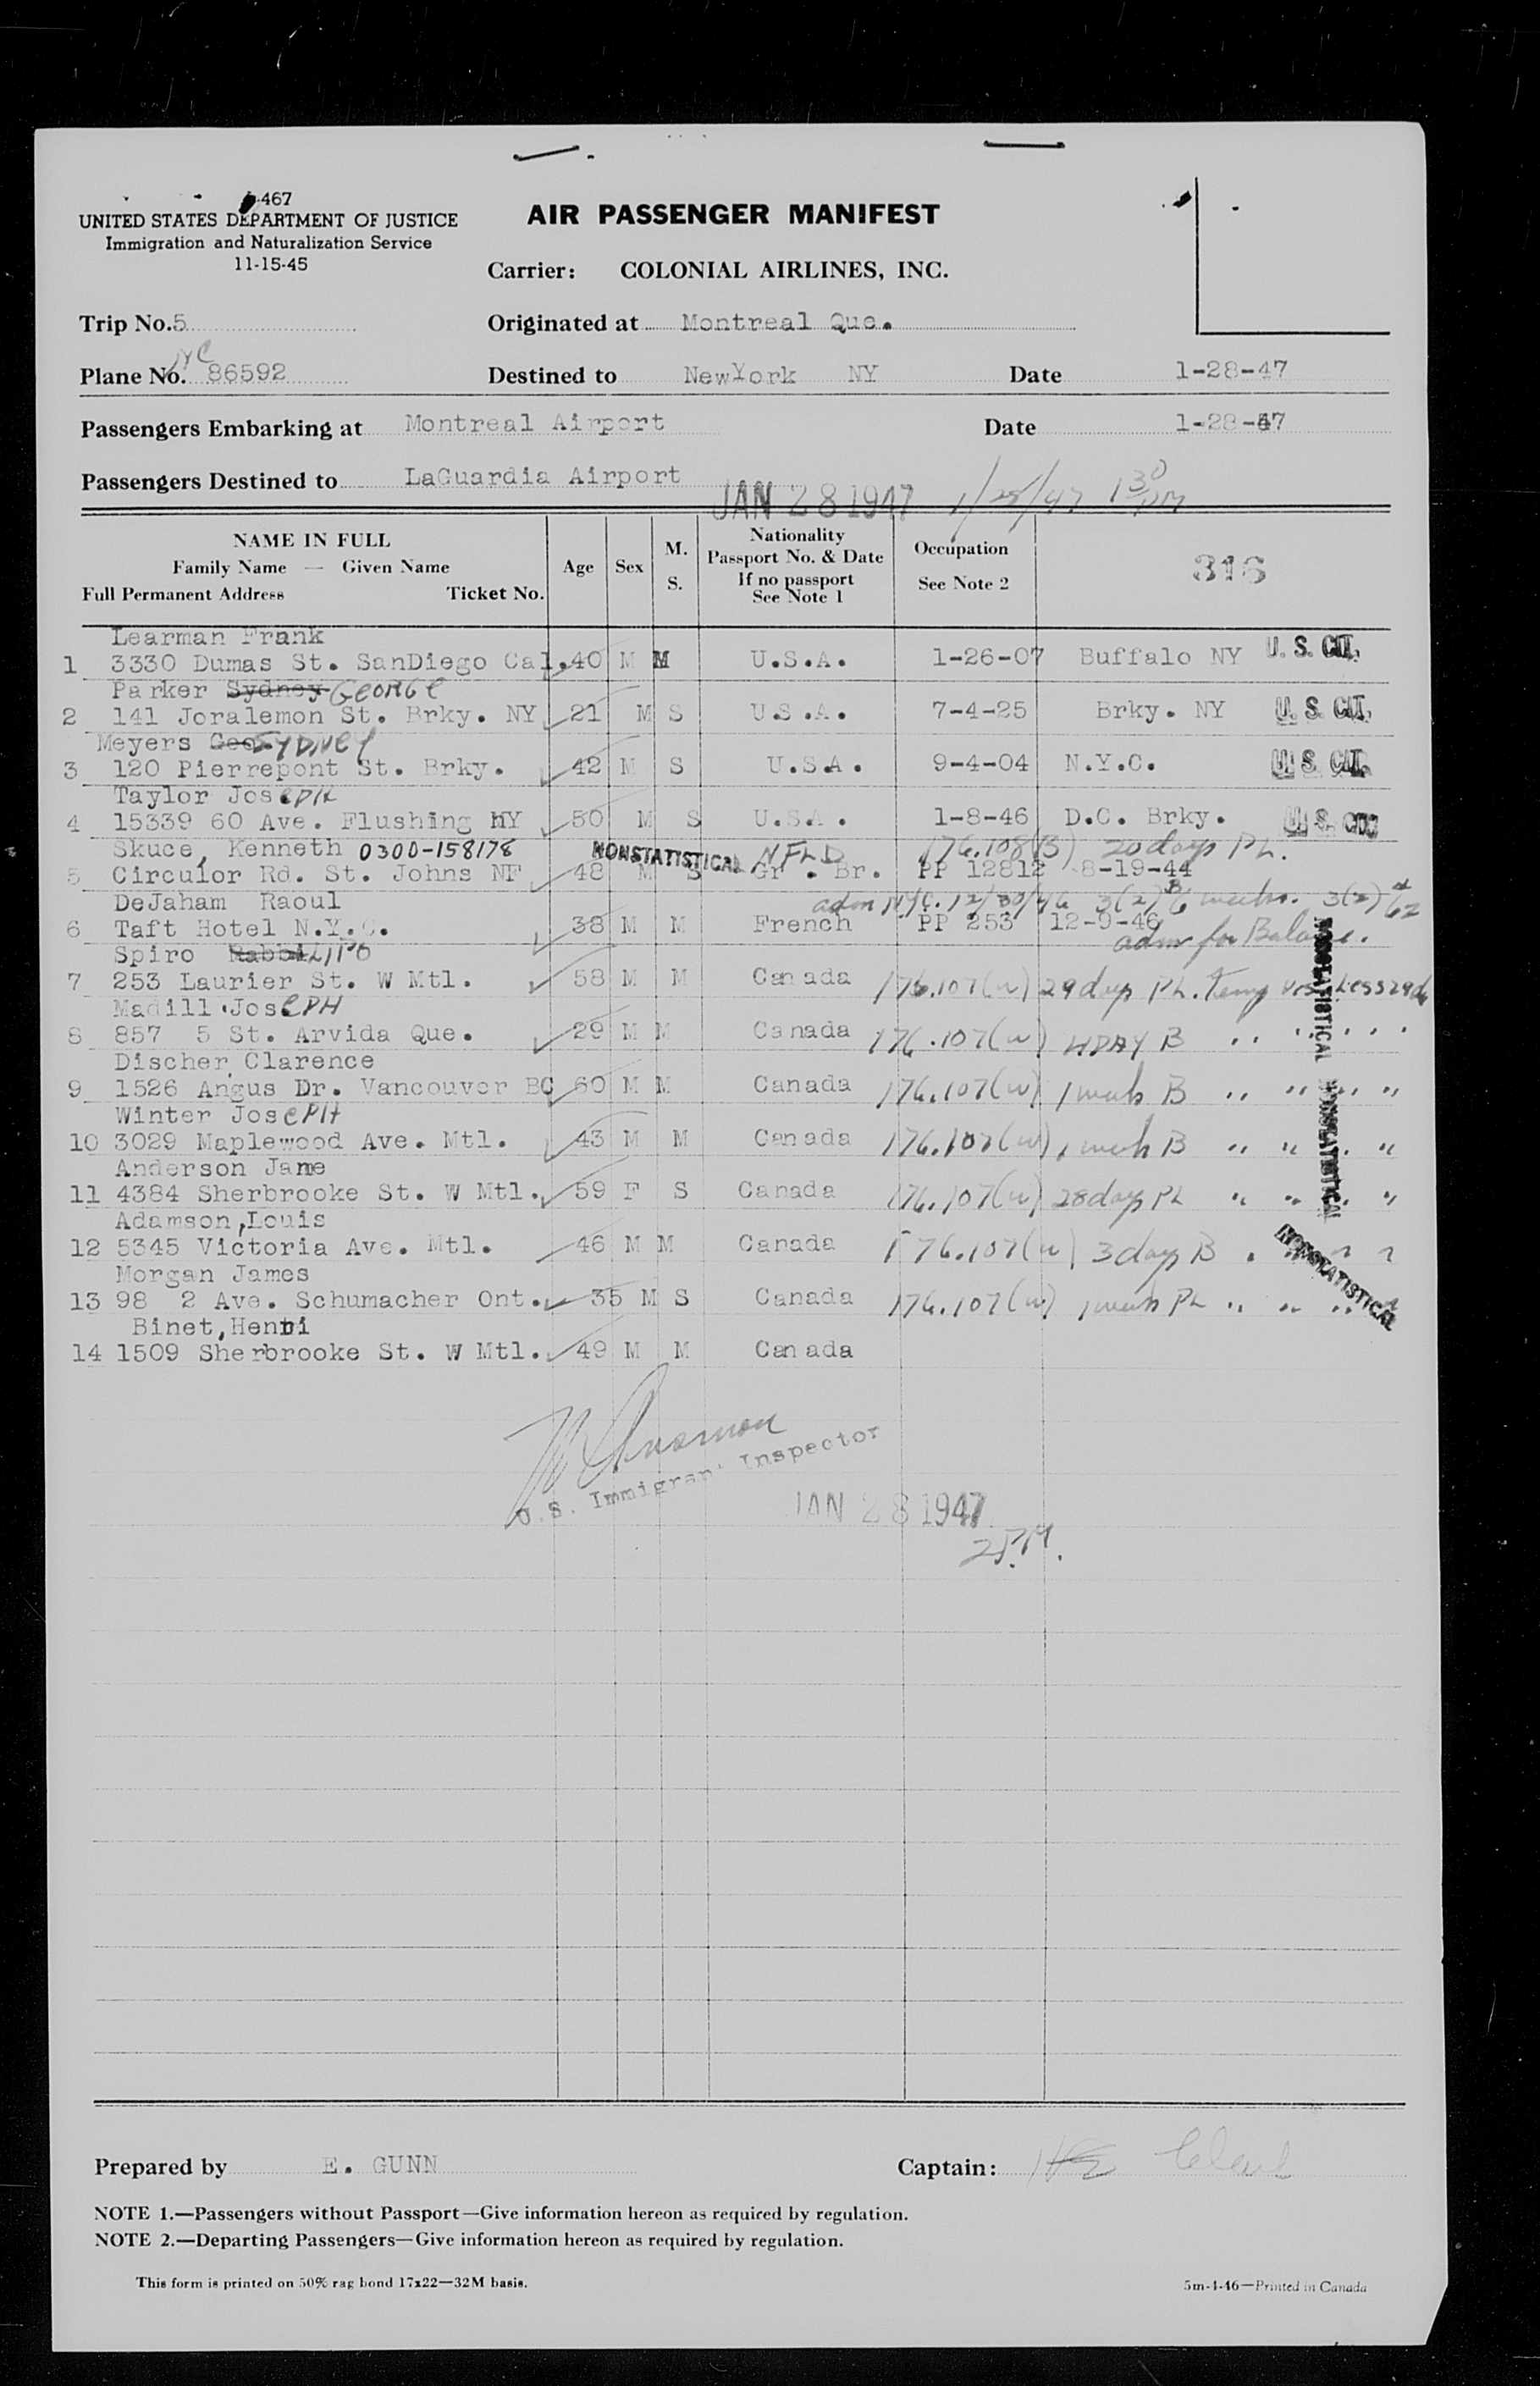 I-467
UNITED STATES DEPARTMENT OF JUSTICE
Immigration and Naturalization Service
11-15-45
AIR PASSENGER MANIFEST
Carrier: COLONIAL AIRLINES, INC.
Trip No. 5 Originated at Montreal Que.
Plane No. NC 86592 Destined to NewYork NY Date 1-28-47
Passengers Embarking at Montreal Airport Date 1-28-47
Passengers Destined to LaGuardia Airport
JAN 28 1947 1/28/47 1 30 PM
NAME IN FULL
Family Name — Given Name
Full Permanent Address Ticket No.
Age Sex M. S.
Nationality
Passport No. & Date
If no passport
See Note 1
Occupation
See Note 2
316
Learman Frank
1 3330 Dumas St. SanDiego Cal. 40 M M U.S.A. 1-26-07 Buffalo NY U. S. CIT.
Parker Sydney GEORGE
2 141 Joralemon St. Brky. NY 21 M S U.S.A. 7-4-25 Brky. NY U. S. CIT.
Meyers Geo. SYDNEY
3 120 Pierrepont St. Brky. 42 M S U.S.A. 9-4-04 N.Y.C. U. S. CIT.
Taylor JosEPH
4 15339 60 Ave. Flushing NY 50 M S U.S.A. 1-8-46 D.C. Brky. U. S. CIT.
Skuce, Kenneth 0300-158178 NONSTATISTICAL NFLD 176.108(B) 20 days PL.
5 Circulor Rd. St. Johns NF 48 M S Gr. Br. PP 12812 8-19-44
DeJaham Raoul adm NYC. 12/30/46 3(2) B 6 weeks. 3(2)
6 Taft Hotel N.Y.C. 38 M M French PP 253 12-9-46 adm for Balance.
Spiro Rabbi LIPO
7 253 Laurier St. W Mtl. 58 M M Canada 176.107(w) 29 days PL. Temp Vis. Less 29 ds
Madill JosEPH
8 857 5 St. Arvida Que. 29 M M Canada 176.107(w) 4 DAY B " " " "
Discher Clarence
9 1526 Angus Dr. Vancouver BC 60 M M Canada 176.107(w) 1 week B " " " "
Winter JosEPH
10 3029 Maplewood Ave. Mtl. 43 M M Canada 176.107(w) 1 week B " " " "
Anderson Jane
11 4384 Sherbrooke St. W Mtl. 59 F S Canada 176.107(w) 28 days PL " " " "
Adamson, Louis
12 5345 Victoria Ave. Mtl. 46 M M Canada 176.107(w) 3 days B " " " "
Morgan James
13 98 2 Ave. Schumacher Ont. 35 M S Canada 176.107(w) 1 week PL " " " "
Binet, Henri
14 1509 Sherbrooke St. W Mtl. 49 M M Canada
NONSTATISTICAL
NONSTATISTICAL
NONSTATISTICAL
U.S. Immigrant Inspector
JAN 28 1947
2 P.M.
Prepared by E. GUNN Captain:
NOTE 1.—Passengers without Passport—Give information hereon as required by regulation.
NOTE 2.—Departing Passengers—Give information hereon as required by regulation.
This form is printed on 50% rag bond 17x22—32M basis. 5m-4-46—Printed in Canada